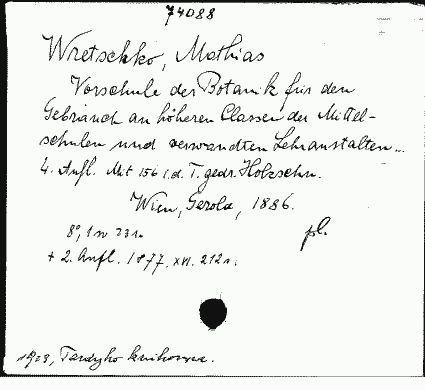 74088
Wretschko, Mathias
Vorschule der Botanik für den
Gebrauch an höheren Classen der Mittel-
schulen und verwandten Lehranstalten...
4. Aufl. Mit 156 i. d. T. gedr. Holzschn.
Wien, Gerold, 1886.
8°, 1
pl.
+ 2. Aufl. 1877. XVI. 212 s.
1923,